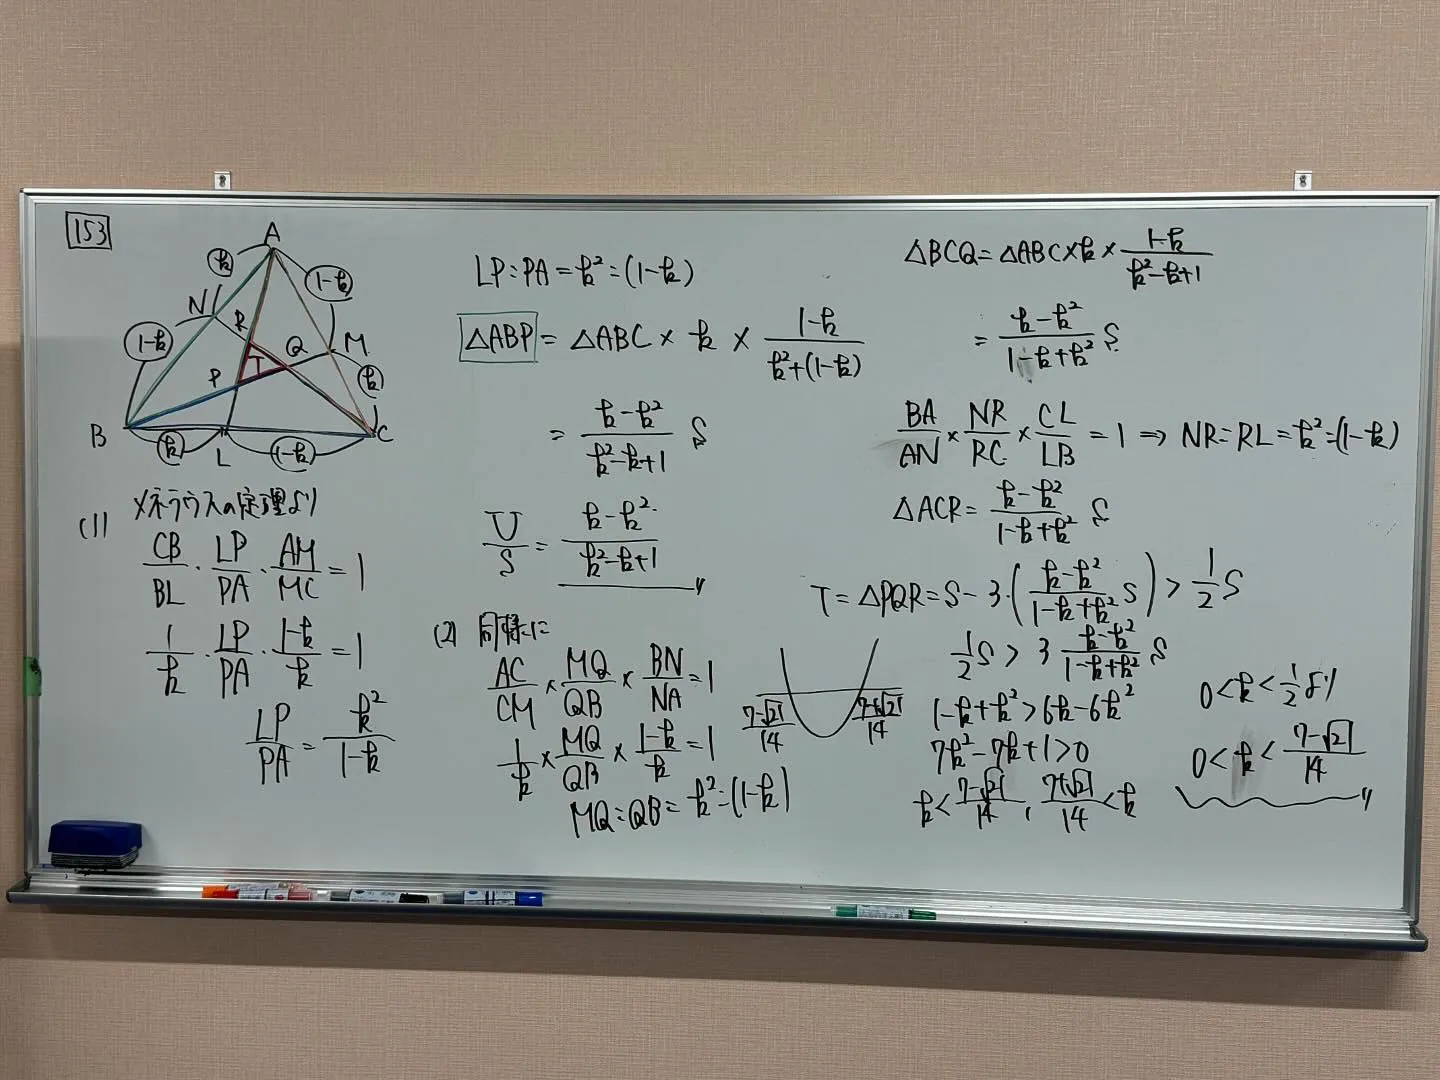 153
A
k
1-k
N
R
Q
M
1-k
T
P
k
B
C
k
L
1-k
(1) メネラウスの定理より
CB/BL · LP/PA · AM/MC = 1
1/k · LP/PA · (1-k)/k = 1
LP/PA = k²/(1-k)
LP:PA = k²:(1-k)
△ABP = △ABC × k × (1-k)/(k²+(1-k))
= (k-k²)/(k²-k+1) S
U/S = (k-k²)/(k²-k+1)
(2) 同様に
AC/CM × MQ/QB × BN/NA = 1
1/k × MQ/QB × (1-k)/k = 1
MQ:QB = k²:(1-k)
△BCQ = △ABC × k × (1-k)/(k²-k+1)
= (k-k²)/(1-k+k²) S
BA/AN × NR/RC × CL/LB = 1 ⇒ NR:RL = k²:(1-k)
△ACR = (k-k²)/(1-k+k²) S
T = △PQR = S - 3·((k-k²)/(1-k+k²) S) > 1/2 S
1/2 S > 3 (k-k²)/(1-k+k²) S
1-k+k² > 6k-6k²
7k²-7k+1>0
k < (7-√21)/14 , (7+√21)/14 < k
(7-√21)/14
(7+√21)/14
0<k<1/2より
0<k<(7-√21)/14